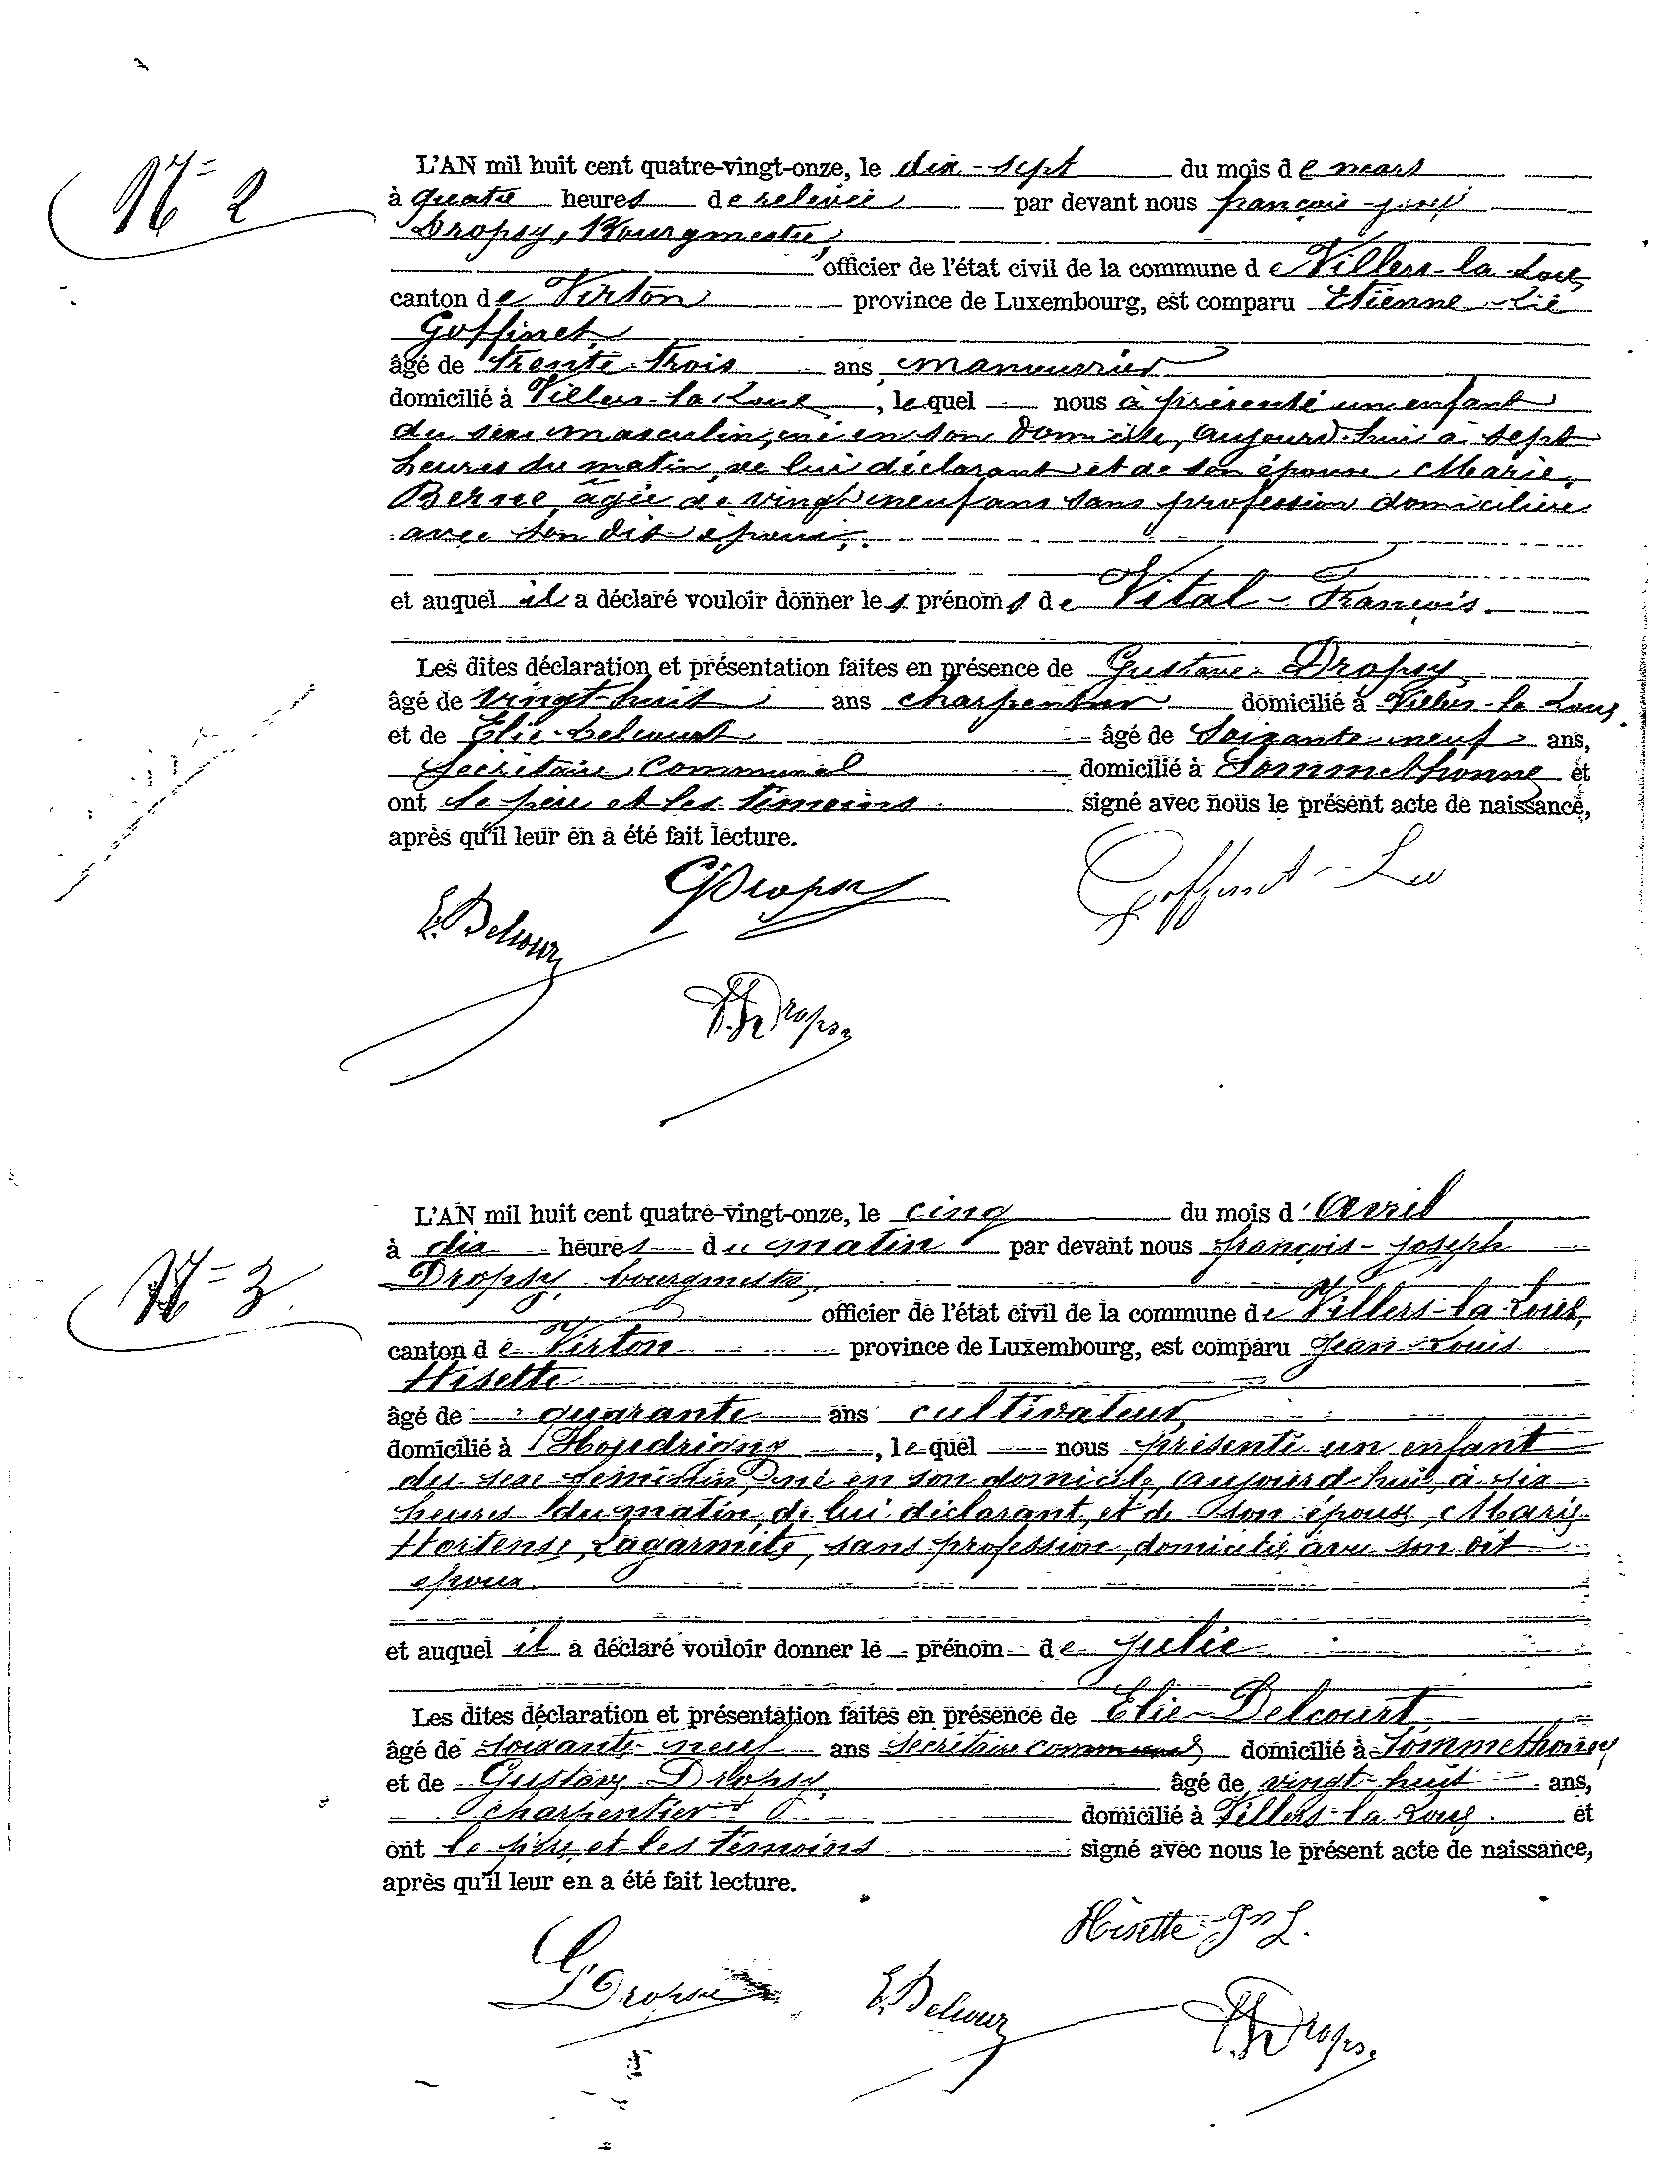 N° 2
L'AN mil huit cent quatre-vingt-onze, le dix-sept du mois de mars
à quatre heures de relevée, par devant nous françois-josep
Dropsy, Bourgmestre,
officier de l'état civil de la commune de Villers-la-Loue,
canton de Virton province de Luxembourg, est comparu Etienne
Goffinet
âgé de trente-trois ans, manœuvrier
domicilié à Villers-la-Loue, lequel nous à présenté un enfant
du sexe masculin, né en son domicile, aujourd'hui à sept
heures du matin de lui déclarant et de son épouse, Marie
Berne, âgée de vingt neuf ans sans profession domiciliée
avec son dit époux,
et auquel il a déclaré vouloir donner les prénoms de Vital-François.
Les dites déclaration et présentation faites en présence de Gustave Dropsy
âgé de vingt-huit ans charpentier domicilié à Villers-la-Loue,
et de Elie Delcourt âgé de Soixante-neuf ans,
Secrétaire Communal domicilié à Sommethonne et
ont le père et les témoins signé avec nous le présent acte de naissance,
après qu'il leur en a été fait lecture.
G Dropsy Goffinet
E. Delcour
F. J. Dropsy
N° 3
L'AN mil huit cent quatre-vingt-onze, le cinq du mois d'Avril
à dix heures du matin par devant nous françois-joseph
Dropsy, bourgmestre,
officier de l'état civil de la commune de Villers-la-Loue,
canton de Virton province de Luxembourg, est comparu Jean Louis
Hisette
âgé de quarante ans cultivateur,
domicilié à Houdrigny, lequel nous présenté un enfant
du sexe féminin, né en son domicile, aujourd'hui, à six
heures du matin, de lui déclarant, et de son épouse, Marie
Hortense, Lagarmite, sans profession, domicilié avec son dit
époux.
et auquel il a déclaré vouloir donner le prénom de Julie
Les dites déclaration et présentation faites en présence de Elie Delcourt
âgé de soixante-neuf ans secrétaire communal domicilié à Sommethonne
et de Gustave Dropsy, âgé de vingt-huit ans,
charpentier domicilié à Villers-la-Loue. et
ont le père et les témoins signé avec nous le présent acte de naissance,
après qu'il leur en a été fait lecture.
Hisette Jn L.
G Dropsy E. Delcour F. J. Dropsy